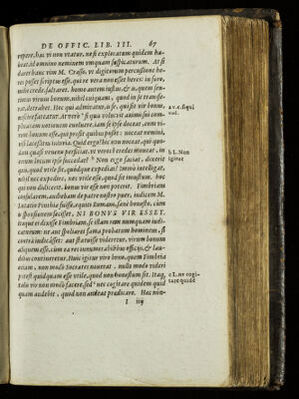 DE OFFIC. LIB. III. 67
repere, has vi non vtatur, ne si exploratum quidem ha-
beat, id omnino neminem vmquam suspicaturum. At si
dares hanc vim M. Crasso, vt digitorum percussione he-
res posset scriptus esse, qui re vera non esset heres, in foro,
mihi crede, saltaret. homo autem iustus, & is, quem sen-
timus virum bonum, nihil cuiquam, quod in se transfe-
rat, detrahet. Hoc qui admiratur, is se, qui sit vir bonus,
nescire fateatur. At vero si qui voluerit animi sui com-
plicatam notionem euoluere, iam se ipse doceat, eum vi-
rum bonum esse, qui prosit quibus possit: noceat nemini,
nisi lacessitus iniuria. Quid ergo? hic non noceat, qui quo-
dam quasi veneno perficiat, vt veros heredes moueat, in
eorum locum ipse succedat? Non ergo faciat, dixerit
quis, quod vtile sit, quod quæ expediat? Immo intelligat,
nihil nec expedire, nec vtile esse, quod sit iniustum. hoc
qui non didicerit, bonus vir esse non poterit. Fimbriam
consularem, audiebam de patre nostro puer, iudicem M.
Lutatio Pinthiæ fuisse, equiti Romano, sane honesto, cum
is sponsionem fecisset, NI BONVS VIR ESSET.
itaque ei dixisse Fimbriam, se illam rem numquam iudi-
caturum: ne aut spoliaret fama probatum hominem, si
contra iudicasset: aut statuisse videretur, virum bonum
aliquem esse, cum ea res innumeris officiis, & lau-
dibus contineretur. Huic igitur viro bono, quem Fimbria
etiam, non modo Socrates nouerat, nullo modo videri
potest quidquam esse vtile, quod non honestum sit. Itaq,
talis vir non modo facere, sed ne cogitare quidem quid
quam audebit, quod non audeat prædicare. Hæc non-
I iij
b L. Non
igitur